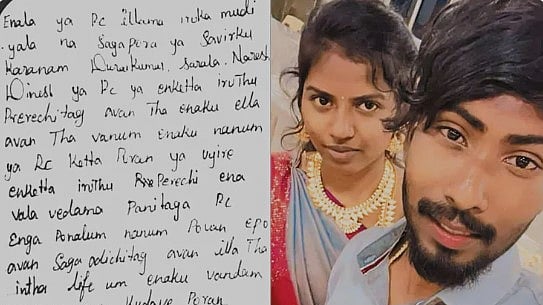 Enala ya Pc illama iruka mudi
yala na Sagapora ya Savirku
Karanam Durukumar, Sarala, Naresh
Dinesh ya Pc ya enketta iruthu
Prerechitag avan Tha enaku ella
avan Tha vanum enaku nanum
ya Pc Ketta Poran ya uyire
enketta iruthu Perechi ena
vala vedama Panitaga Pc
Enga Ponalum nanum Poran epo
avan Saga polichitag avan illa Tha
intha life um enaku vandam
Poran